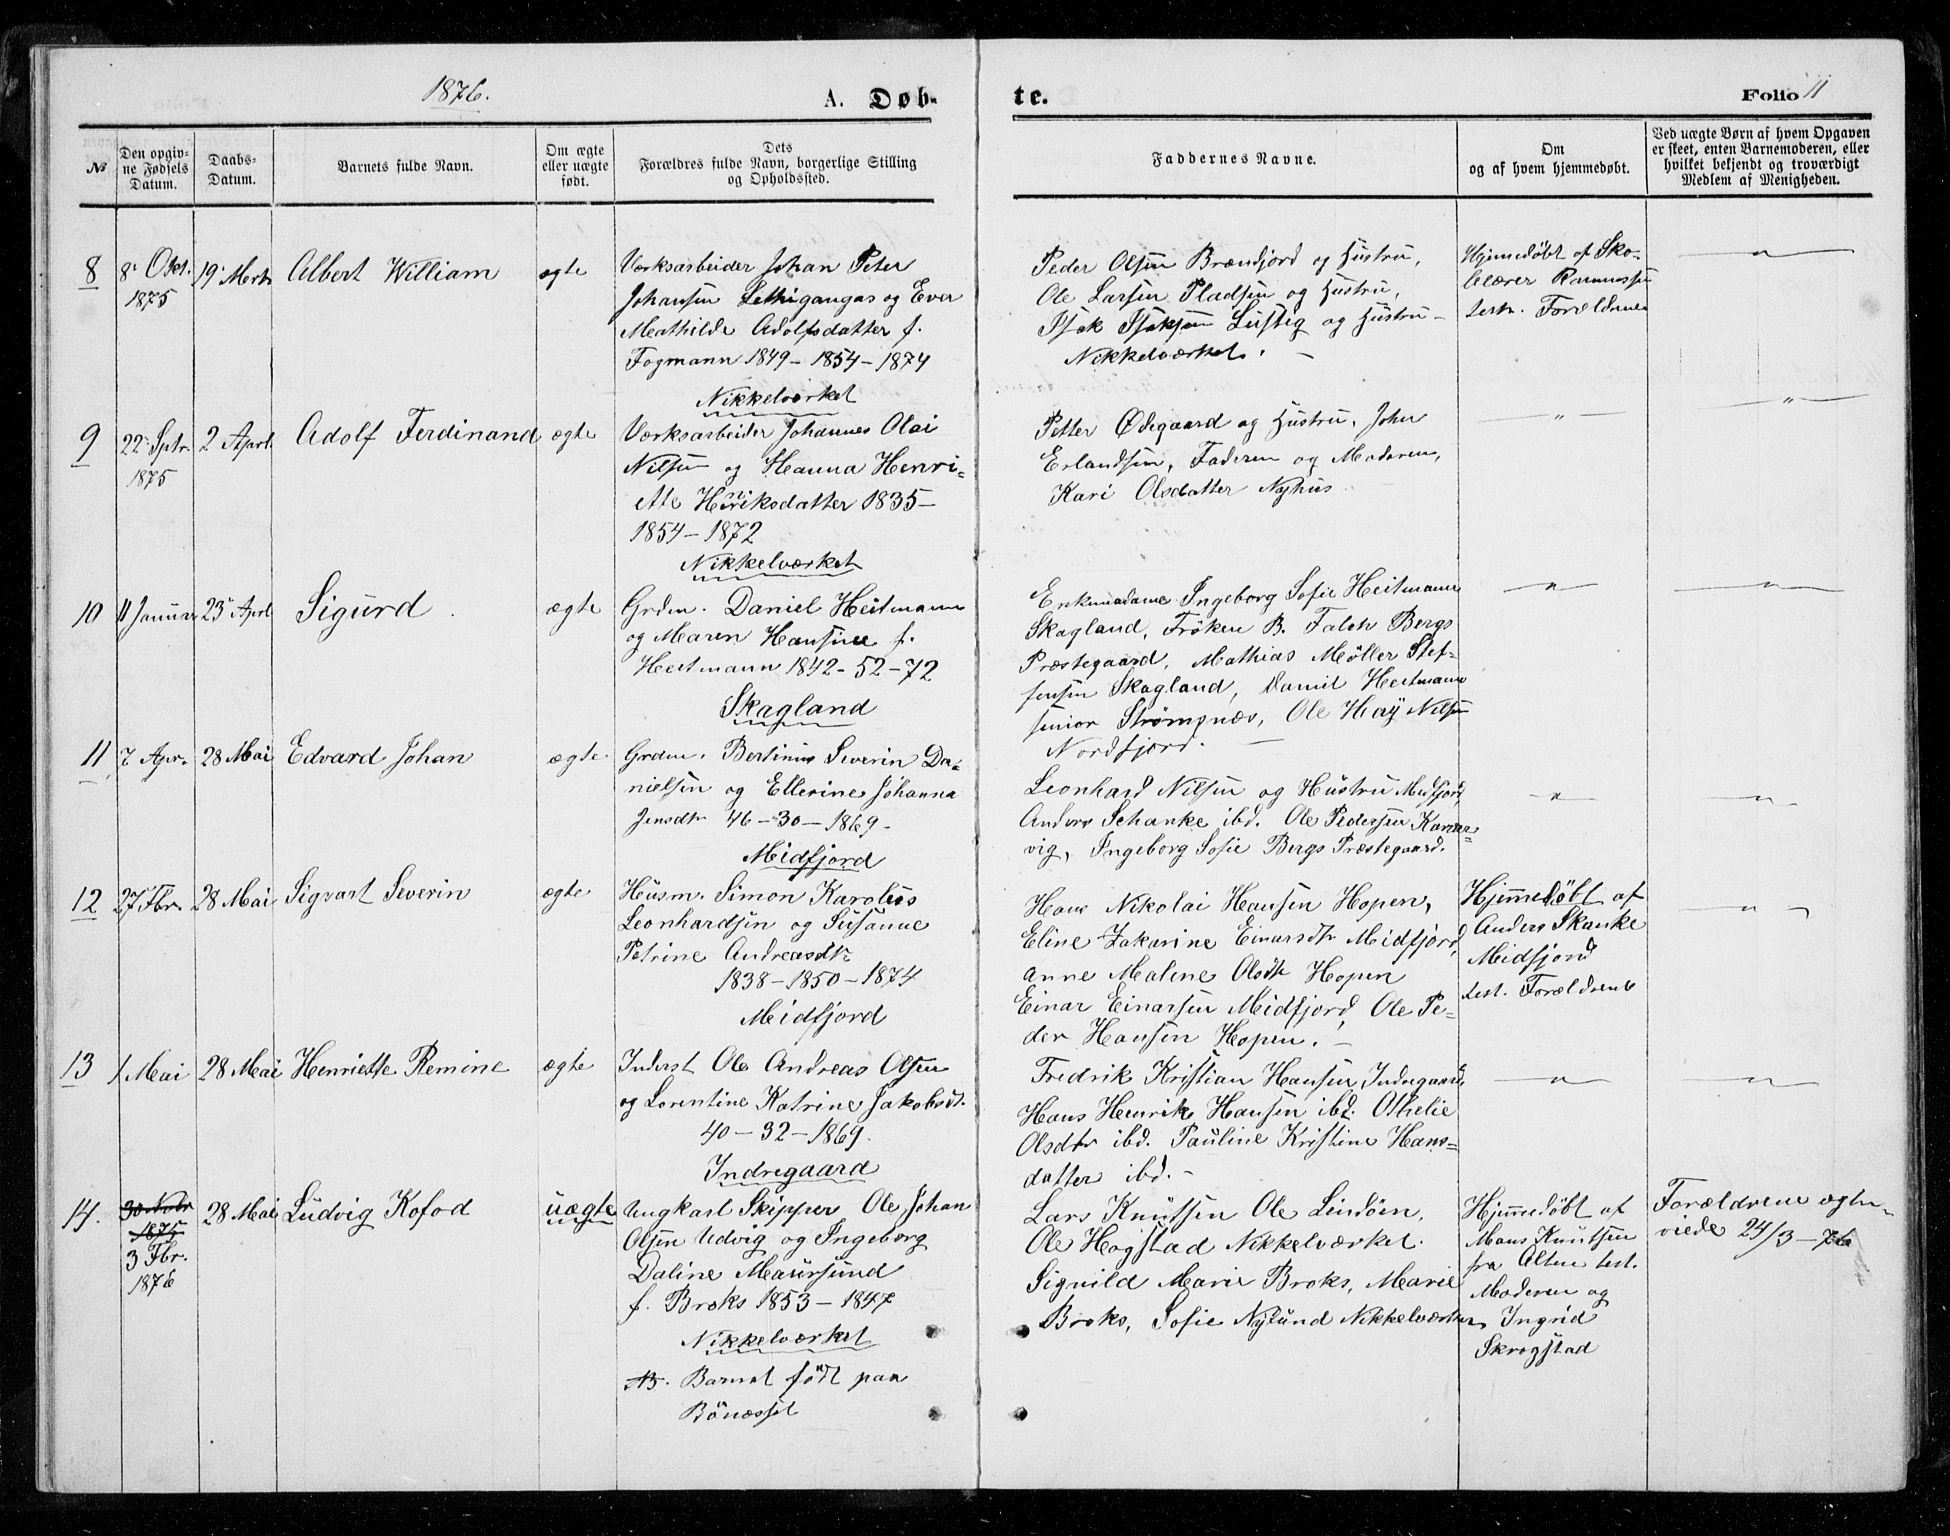 1876.
A. Døb-
te.
Folio 11
№
Den opgiv-
ne Fødsels
Datum.
Daabs-
Datum.
Barnets fulde Navn.
Om ægte
eller uægte
født.
Dets
Forældres fulde Navn, borgerlige Stilling
og Opholdssted.
Faddernes Navne.
Om
og af hvem hjemmedøbt.
Ved uægte Børn af hvem Opgaven
er skeet, enten Barnemoderen, eller
hvilket bekjendt og troværdigt
Medlem af Menigheden.
8
8' Okt.
1875
19' Marts
Albert William
ægte
Værksarbeider Johan Peter
Johansen Lethigangas og Ever
Mathilde Adolfsdatter f.
Fogmann 1849 - 1854 - 1874
Nikkelværket
Peder Olsen Brændjord og Hustru,
Ole Larsen Pladsen og Hustru,
Isak Isaksen Lustig og Hustru -
Nikkelværket. -
Hjemmedøbt af Sko-
lelærer Rasmussen
test. Forældrene
— " —
9
22' Sptr.
1875
2 April
Adolf Ferdinand
ægte
Værksarbeider Johannes Olai
Nilsen og Hanna Henri-
ette Henriksdatter 1835 -
1854 - 1872
Nikkelværket
Petter Ødegaard og Hustru, John
Erlandsen, Faderen og Moderen,
Kari Olsdatter Nyhus
— " —
— " —
10
11 Januar
23' April
Sigurd
ægte
Grdm. Daniel Heitmann
og Maren Hansine f.
Heitmann 1842 - 52 - 72
Skagland
Enkemadame Ingeborg Sofie Heitmann
Skagland, Frøken B. Falch Bergs
Præstegaard, Mathias Møller Stef-
fensen Skagland, Daniel Heitmann
senior Strømsnæs, Ole Høy Nilsen
Nordfjord. -
— " —
— " —
11
7 Apr.
28 Mai
Edvard Johan
ægte
Grdm. Bertinius Severin Da-
nielsen og Ellerine Johanna
Jensdtr 46 - 30 - 1869 -
Midfjord
Leonhard Nilsen og Hustru Midfjord,
Anders Schanke ibd. Ole Pedersen
vig, Ingeborg Sofie Bergs Præstegaard.
— " —
— " —
12
27' Fbr.
28 Mai
Sigvart Severin
ægte
Husm. Simon Karolius
Leonhardsen og Susanne
Petrine Andreasdtr
1838 - 1850 - 1874
Midfjord
Hans Nikolai Hansen Hopen,
Eline Zakarine Einarsdtr Midfjord,
Anne Malene Olsdtr Hopen
Einar Einarsen Midfjord, Ole Pe-
der Hansen Hopen. -
Hjemmedøbt af
Anders Skanke
Midfjord
test. Forældrene
— " —
13
1 Mai
28 Mai
Henriette Remine
ægte
Inderst Ole Andreas Olsen
og Lorentine Katrine Jakobsdt.
40 - 32 - 1869.
Indregaard
Fredrik Kristian Hansen, Indregaard,
Hans Henrik Hansen ibd. Othelie
Olsdtr ibd. Pauline Kristine Hans-
datter ibd. -
— " —
— " —
14.
30 Novbr
1875
3 Fbr.
1876
28 Mai
Ludvig Kofod
uægte
Ungkarl Skipper Ole Johan
Olsen Udvig og Ingeborg
Daline Maursund
f. Broks 1853 - 1847
Nikkelværket
NB. Barnet født paa
Bönæsset
Lars Knutsen Ole Lindöen,
Ole Hogstad Nikkelværket.
Signild Marie Broks, Marie
Broks, Sofie Nylund Nikkelværket
Hjemmedøbt af
Mons Knutsen
fra Alten test.
Moderen og
Ingrid
Skrogstad
Forældrene ægte-
viede 24/3 - 76